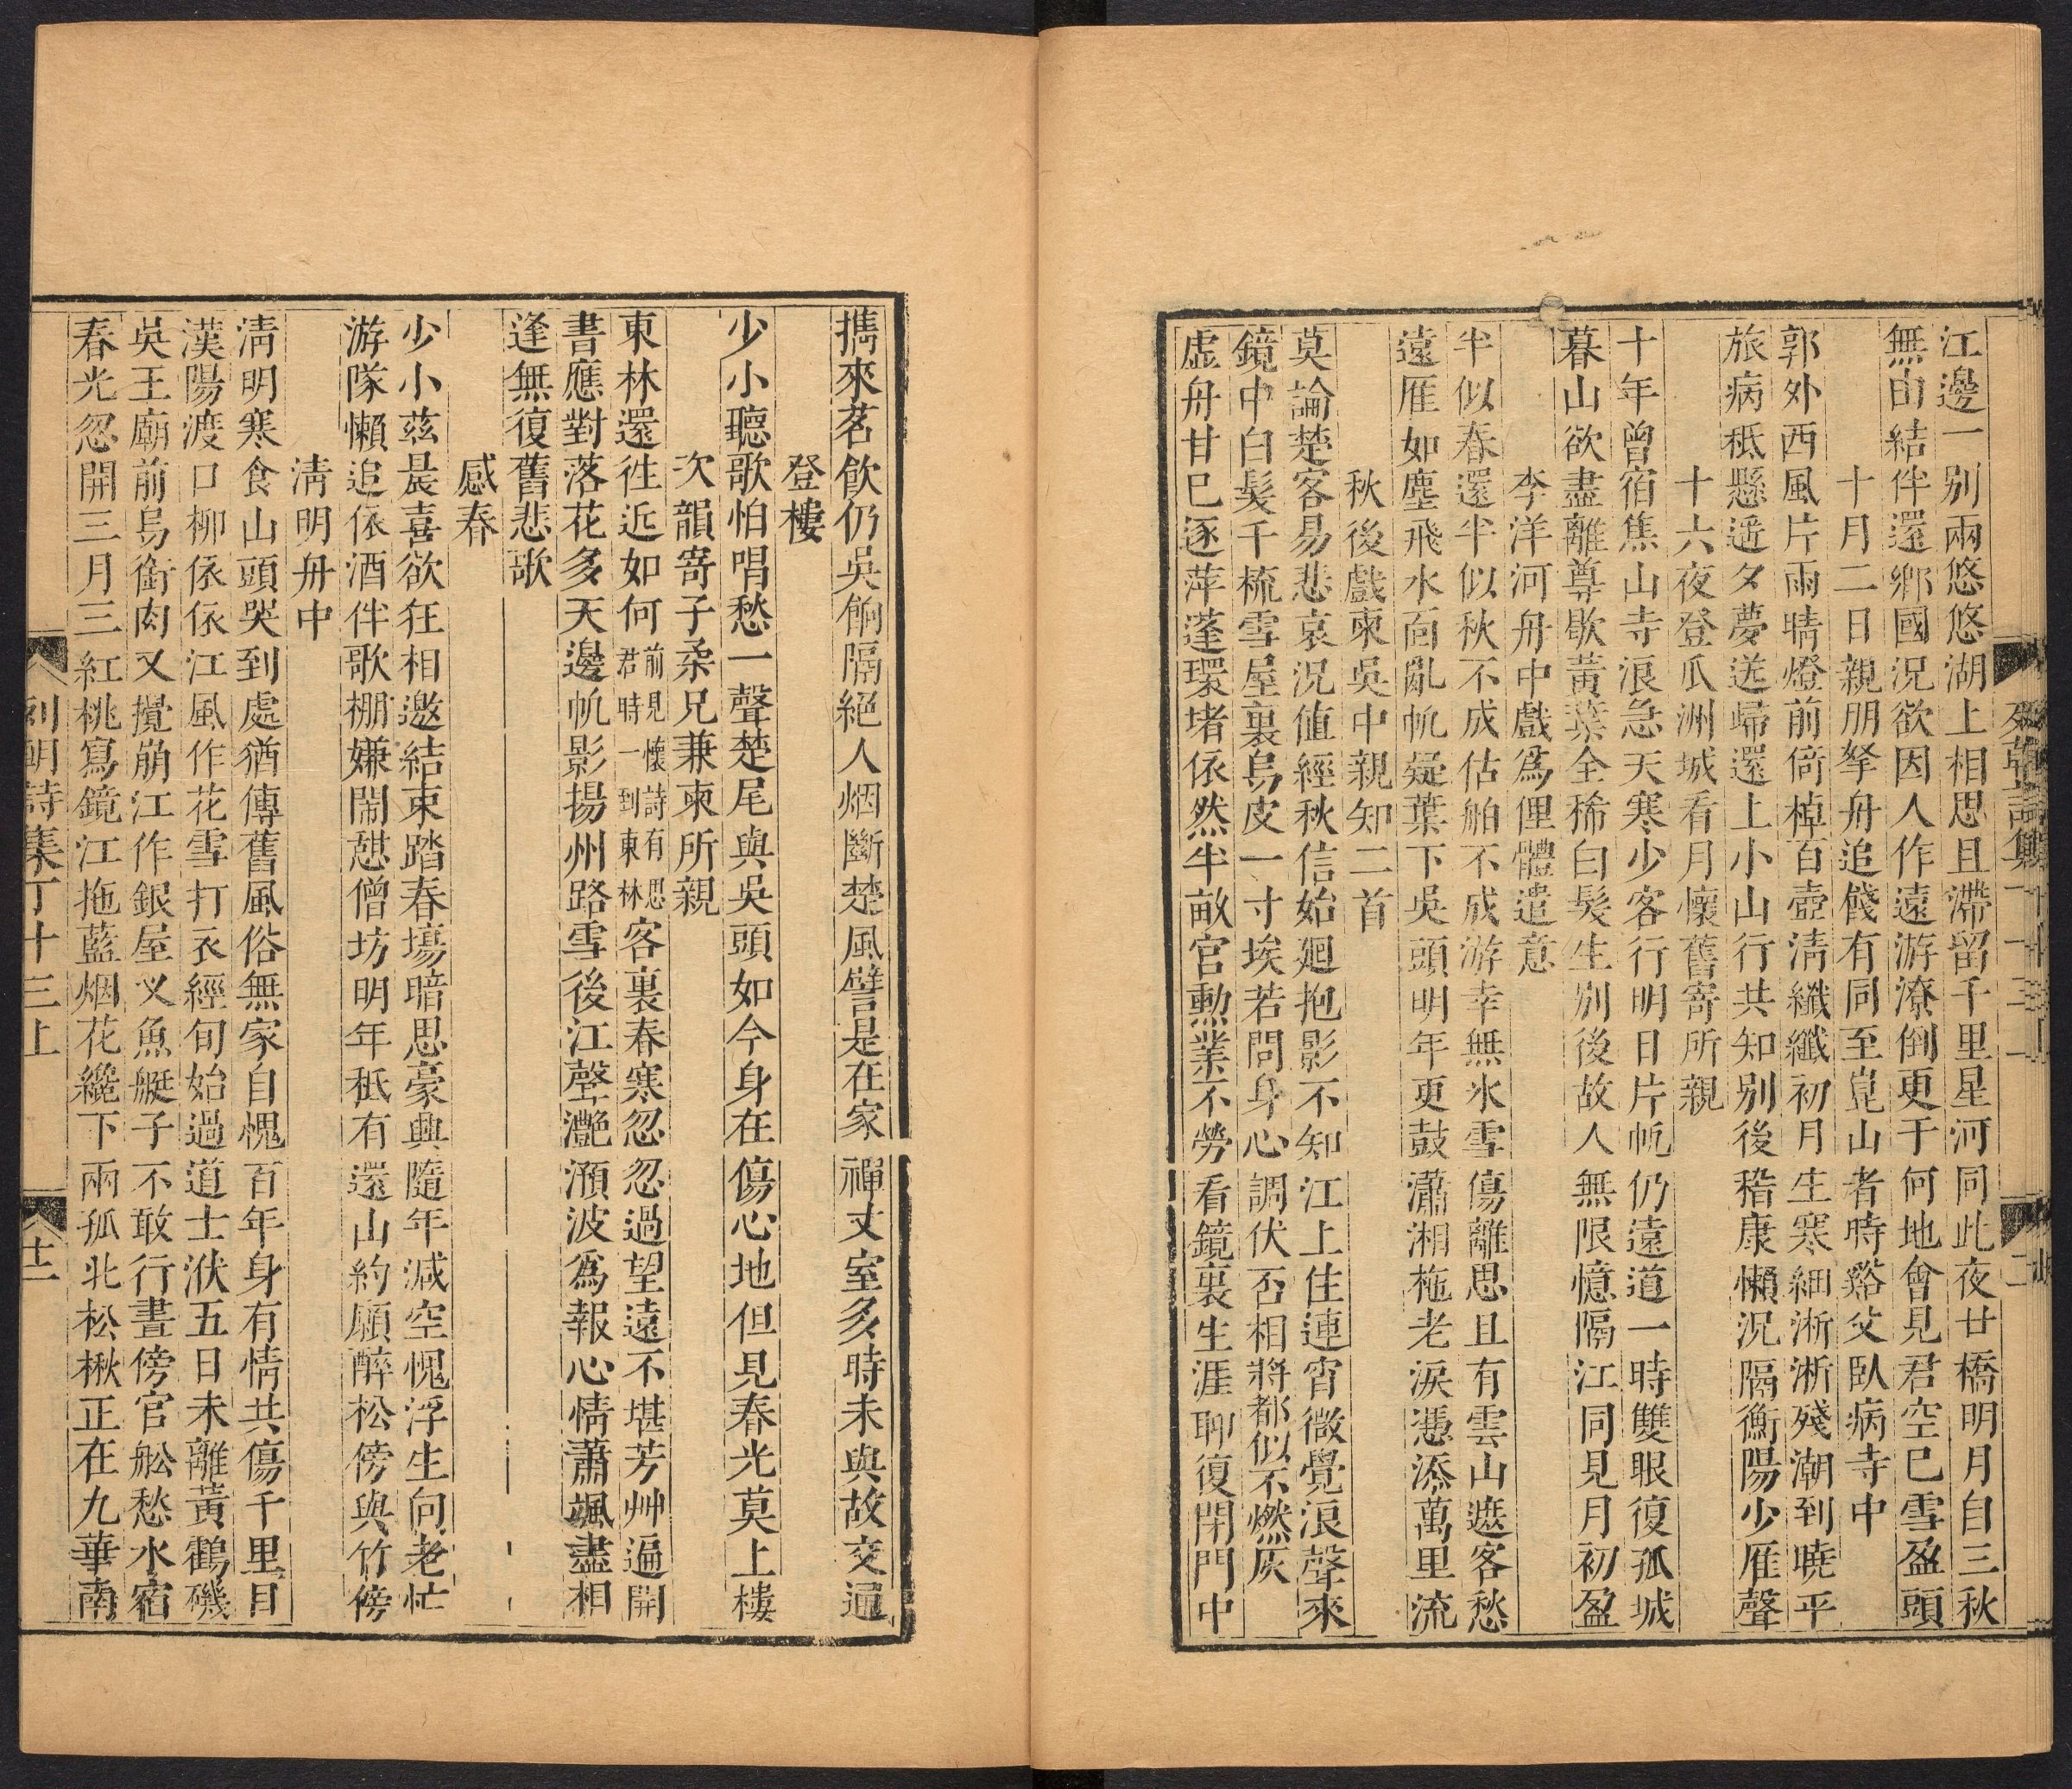 江邊一別兩悠悠湖上相思且滯留千里星河同此夜廿橋明月自三秋
無由結伴還鄉國況欲因人作遠游潦倒更于何地會見君空已雪盈頭
十月二日親朋拏舟追餞有同至崑山者時谿父臥病寺中
郭外西風片雨晴燈前倚棹百壺淸纖纖初月生寒細淅淅殘潮到曉平
旅病秪懸遥夕夢送歸還上小山行共知別後稽康懶況隔衡陽少雁聲
十六夜登瓜洲城看月懷舊寄所親
十年曾宿焦山寺浪急天寒少客行明日片帆仍遠道一時雙眼復孤城
暮山欲盡離尊歇黃葉全稀白髮生別後故人無限憶隔江同見月初盈
李洋河舟中戲爲俚體遣意
半似春還半似秋不成估舶不成游幸無氷雪傷離思且有雲山遮客愁
遠雁如塵飛水面亂帆疑葉下吳頭明年更鼓瀟湘柂老淚憑添萬里流
秋後戲柬吳中親知二首
莫論楚客易悲哀況値經秋信始廻抱影不知江上住連宵微覺浪聲來
鏡中白髮千梳雪屋裏烏皮一寸埃若問身心調伏否相將都似不燃灰
虛舟甘已逐萍蓬環堵依然半畝宮勳業不勞看鏡裏生涯聊復閉門中
擕來茗飮仍吳餉隔絕人烟斷楚風譬是在家禪丈室多時未與故交通
登樓
少小聽歌怕唱愁一聲楚尾與吳頭如今身在傷心地但見春光莫上樓
次韻寄子柔兄兼柬所親
東林還徃近如何前見懷詩有思君時一到東林客裏春寒忽忽過望遠不堪芳艸遍開
書應對落花多天邊帆影揚州路雪後江聲灔澦波爲報心情蕭颯盡相
逢無復舊悲歌
感春
少小兹晨喜欲狂相邀結束踏春塲暗思豪興隨年減空愧浮生向老忙
游隊懶追依酒伴歌棚嫌鬧憇僧坊明年秪有還山約願醉松傍與竹傍
淸明舟中
淸明寒食山頭哭到處猶傳舊風俗無家自愧百年身有情共傷千里目
漢陽渡口柳依依江風作花雪打衣經旬始過道士洑五日未離黃鶴磯
吳王廟前烏銜肉又攪崩江作銀屋叉魚艇子不敢行晝傍官舩愁水宿
春光忽開三月三紅桃寫鏡江拖藍烟花纔下兩孤北松楸正在九華南
列朝詩集丁十三上
十二